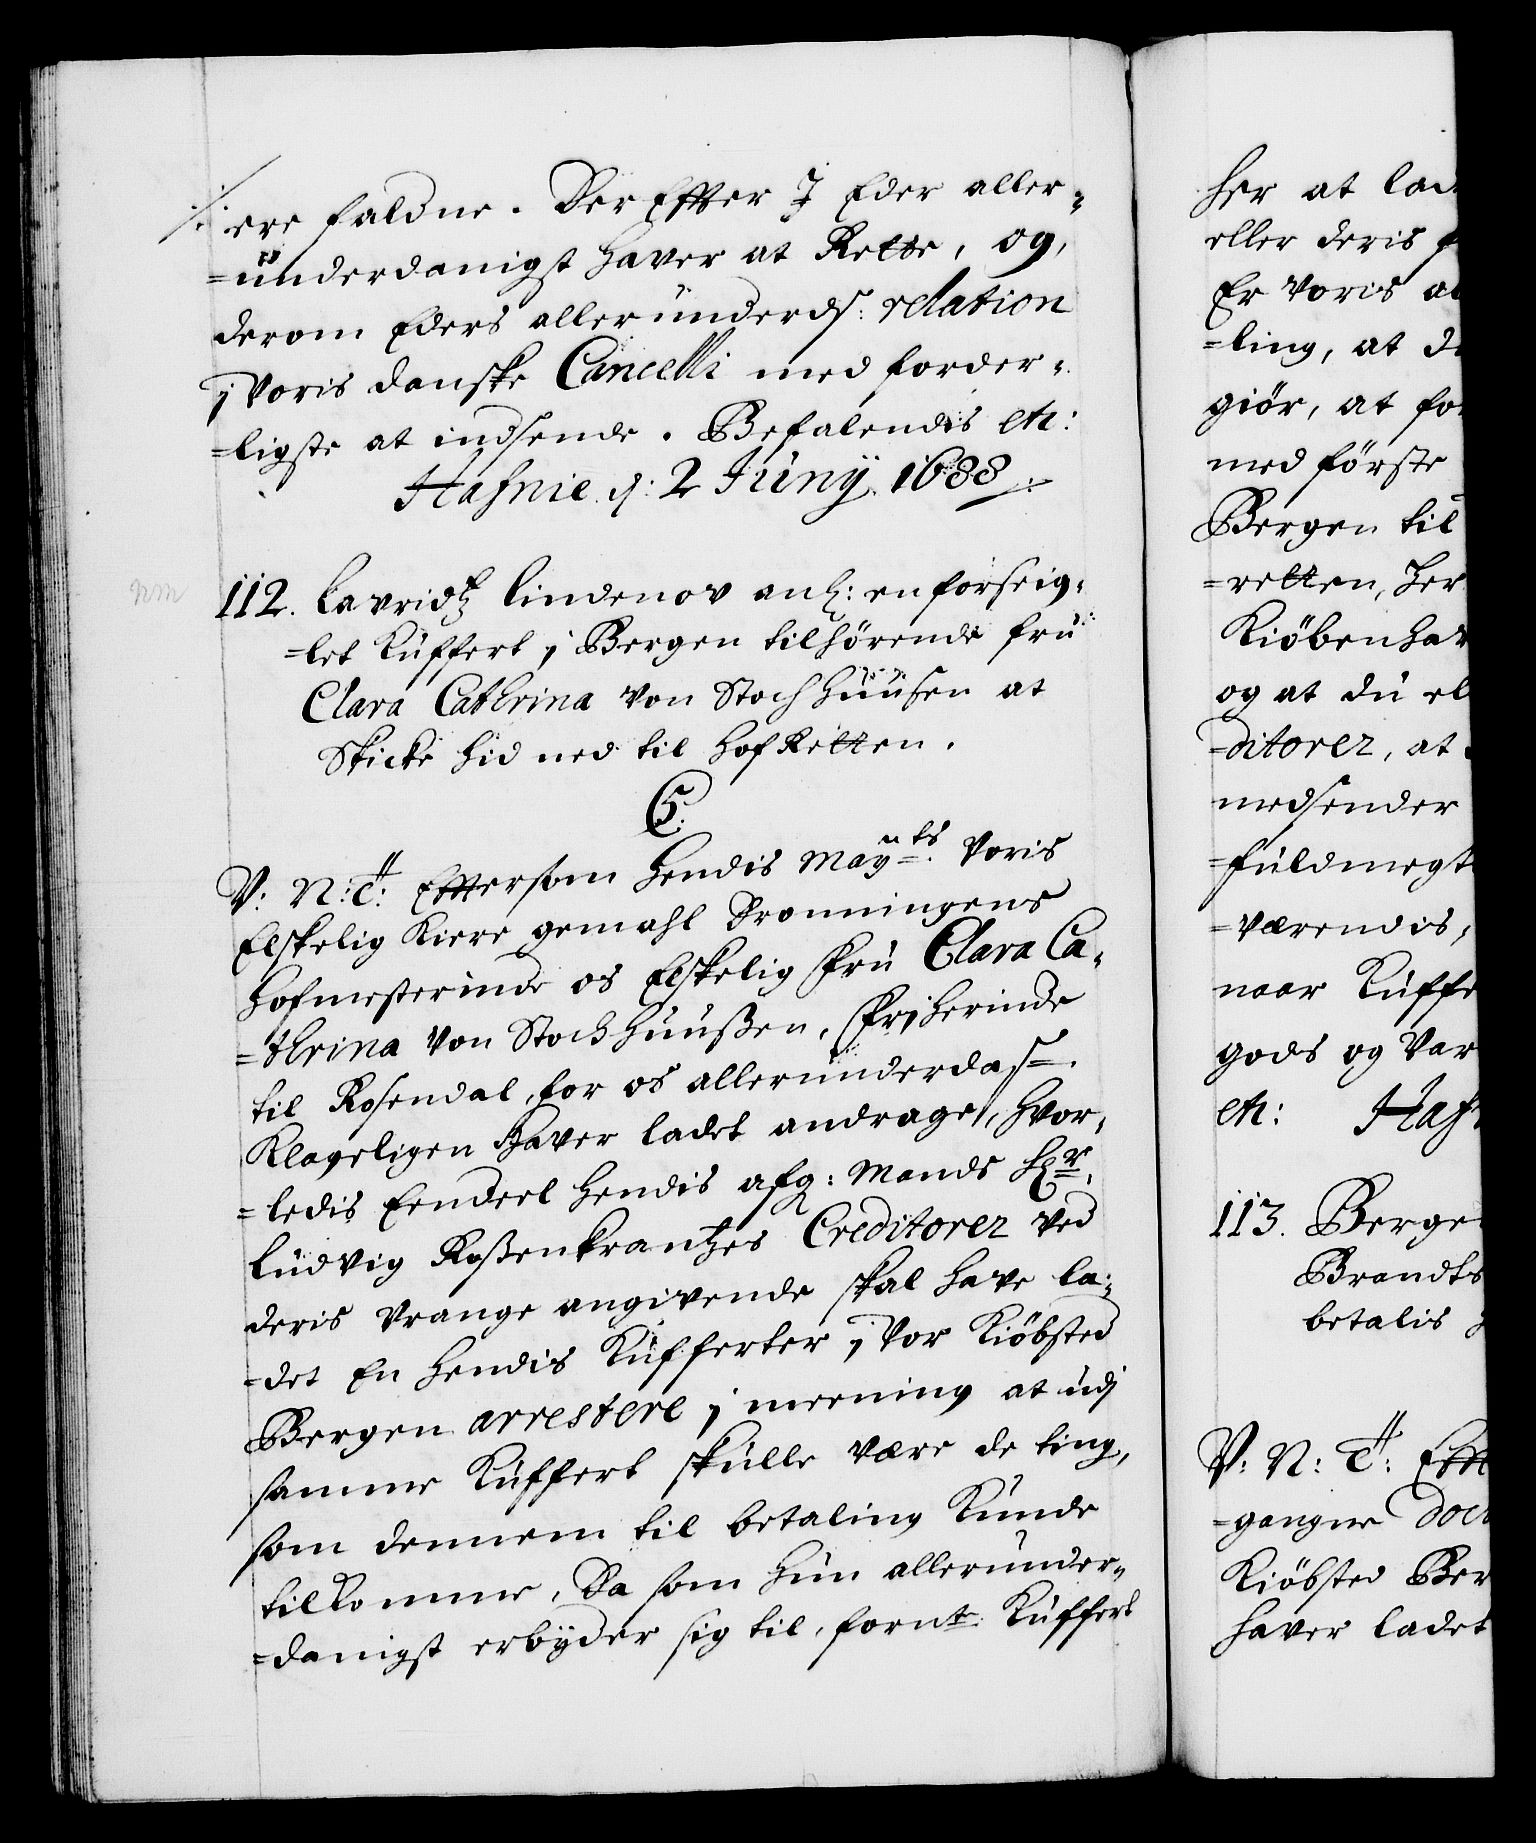 ./. ere faldne. Der Effter J Eder aller¬
=ünderdanigst haver at Rette, og,
derom Eders alleründerds: relation
j Voris danske Cancelli med forder¬
=ligste at indsende. Befalendis etc:
Hafnie d: 2 Junÿ 1688 ./.
112. Lavridtz Lindenov anl: en forseig¬
=let Küffert j Bergen tilhørende frü
Clara Cathrina von Stochhüüsen at
Skicke hid ned til Hof Retten.
C5.
V: N: T: Effter som Hendis Maytts: Voris
Elskelig Kiere gemahl Dronningens
Hofmesterinde os Elskelig Frü Clara Ca¬
=thrina von Stochhüüßen, Friherinde
til Rosendal, for os alleründerdast.
Klageligen haver ladet andrage, hvor¬
=ledis Eendeel hendis afg: Mands Hr.
Lüdvig Roßenkrantzes Creditorer ved
deris Vrange angivende skal have la¬
=det En hendis Küfferter j Vor Kiøbsted
Bergen arrestere j meening at udj
samme Küffert skülle være de ting,
som dennem til betaling Künde
tilkomme, Da som hün alleründer¬
=danigst erbÿder sig til, fornte Küffert
her at lad
eller deris f
Er Voris al
=ling, at d
giør, at for
med første
Bergen til
=retten, her
Kiøbenhav
og at dü el
=ditorer, at
medsender
=füldmegt
=værendis,
naar Küffe
gods og Var
etc: Haf
113. Berge
Brandts
betalis
V: N: T: Efft
=gangne Doc
Kiøbsted Ber
haver ladet